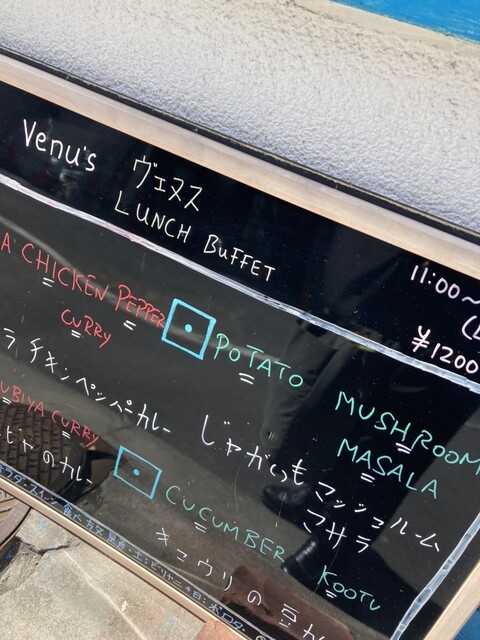 Venu's ヴェヌス
LUNCH BUFFET
11:00~
¥1200
A CHICKEN PEPPER
CURRY
ラ チキンペッパーカレー
POTATO MUSHROOM
MASALA
じゃがいも マッシュルーム
マサラ
UBIYA CURRY
ビヤのカレー
CUCUMBER KOOTU
キュウリの豆カ